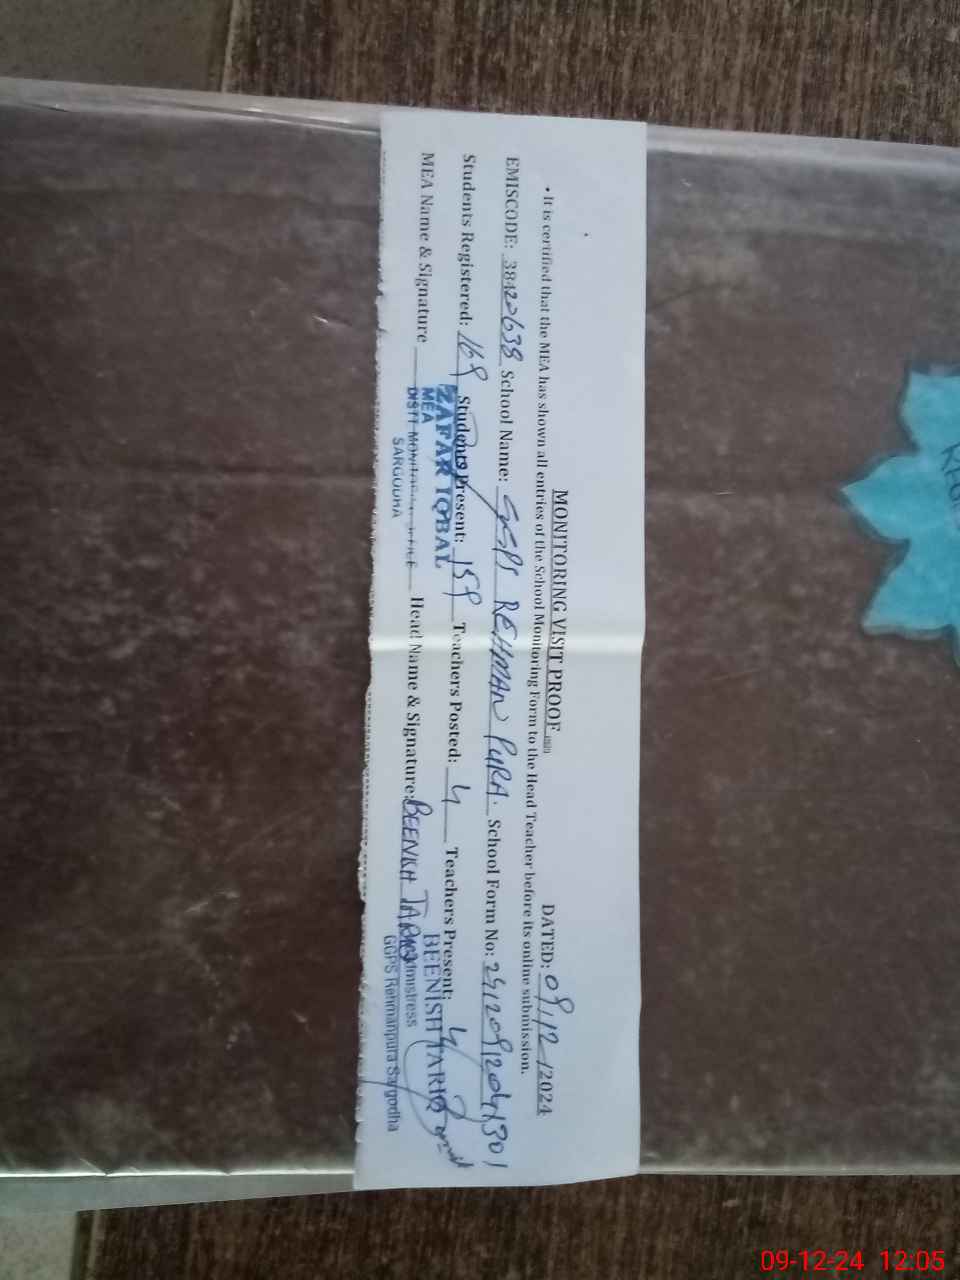 MONITORING VISIT PROOF
DATED: 09/12/2024
• It is certified that the MEA has shown all entries of the School Monitoring Form to the Head Teacher before its online submission.
EMISCODE: 38420638 School Name: GGPS REHMAN PURA. School Form No:
Students Registered: 169 Students Present: 159 Teachers Posted: 4 Teachers Present: 4
MEA Name & Signature Head Name & Signature: BEENISH TARIQ
ZAFAR IQBAL
MEA
DISTT MONITORING OFFICE
SARGODHA
BEENISH TARIQ
Headmistress
GGPS Rehmanpura Sargodha
09-12-24 12:05